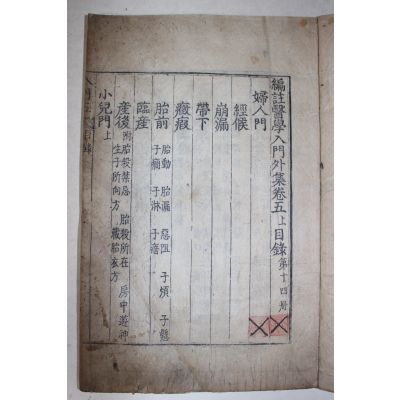 編註醫學入門外集卷五上目錄 第十四冊
婦人門
經候
崩漏
帶下
癥瘕
胎前 胎動 胎漏 惡阻 子煩 子懸
子癇 子淋 子瘖
臨産
産後 附胎殺禁忌 胎殺所在 房中遊神
生子所向方 藏胎衣方
小兒門上